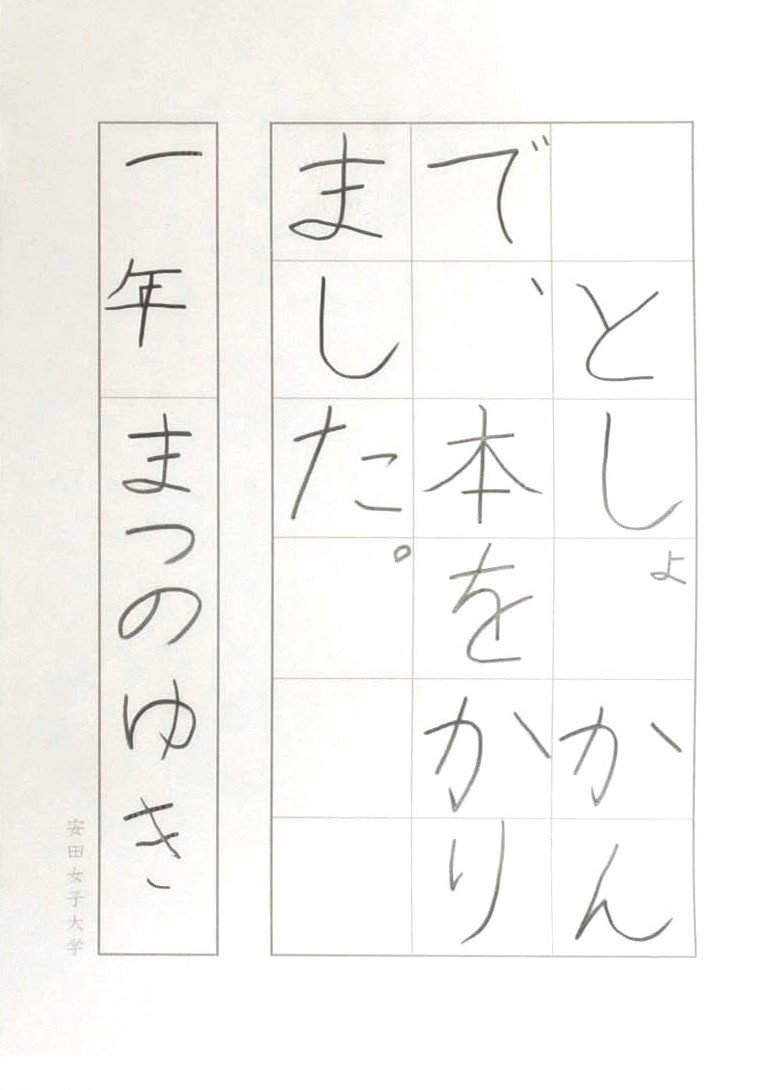 としょかん
で、本をかり
ました。
一年 まつのゆき
安田女子大学